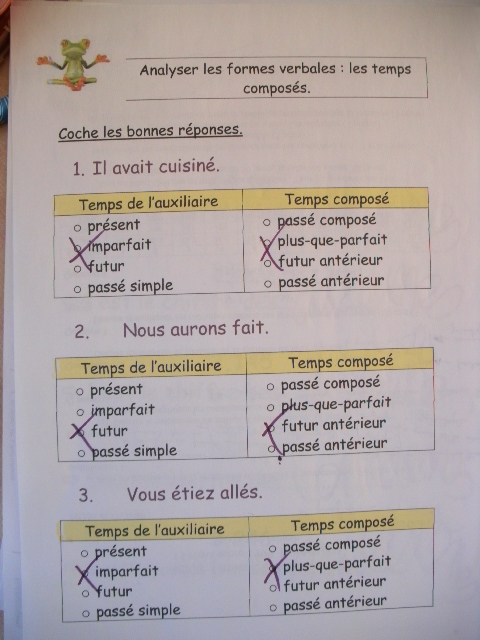 Analyser les formes verbales : les temps
composés.
Coche les bonnes réponses.
1. Il avait cuisiné.
Temps de l'auxiliaire Temps composé
présent passé composé
imparfait plus-que-parfait
futur futur antérieur
passé simple passé antérieur
2. Nous aurons fait.
Temps de l'auxiliaire Temps composé
présent passé composé
imparfait plus-que-parfait
futur futur antérieur
passé simple passé antérieur
3. Vous étiez allés.
Temps de l'auxiliaire Temps composé
présent passé composé
imparfait plus-que-parfait
futur futur antérieur
passé simple passé antérieur